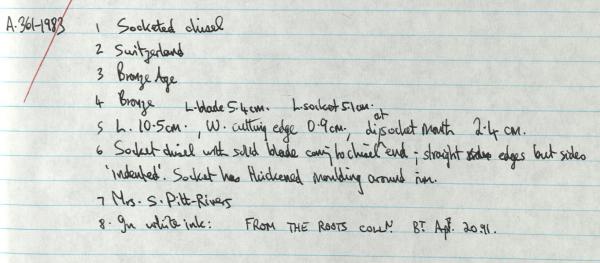 A.361-1983 1 Socketed chisel
2 Switzerland
3 Bronze Age
4 Bronze L. blade 5.4cm. L. socket 5.1cm.
5 L. 10.5cm., W. cutting edge 0.9cm, di. at socket mouth 2.4 cm.
6 Socket chisel with solid blade coming to chisel end; straight edges but sides
'indented'. Socket has thickened moulding around rim.
7 Mrs. S. Pitt-Rivers
8. In white ink: FROM THE ROOTS COLLN. BT. Apr. 2091.